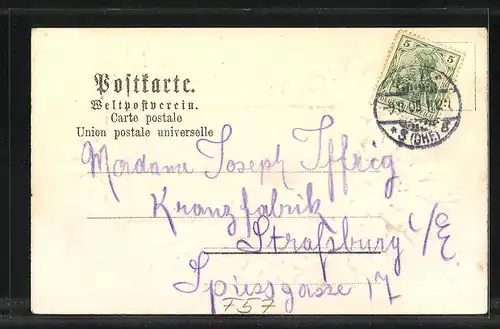 Postkarte.
Weltpostverein.
Carte postale
Union postale universelle
5 5
* S (BHF) *
Madama Joseph Iffrig
Kranzfabrik
Straßburg i/E
Spiessgasse 17
F57